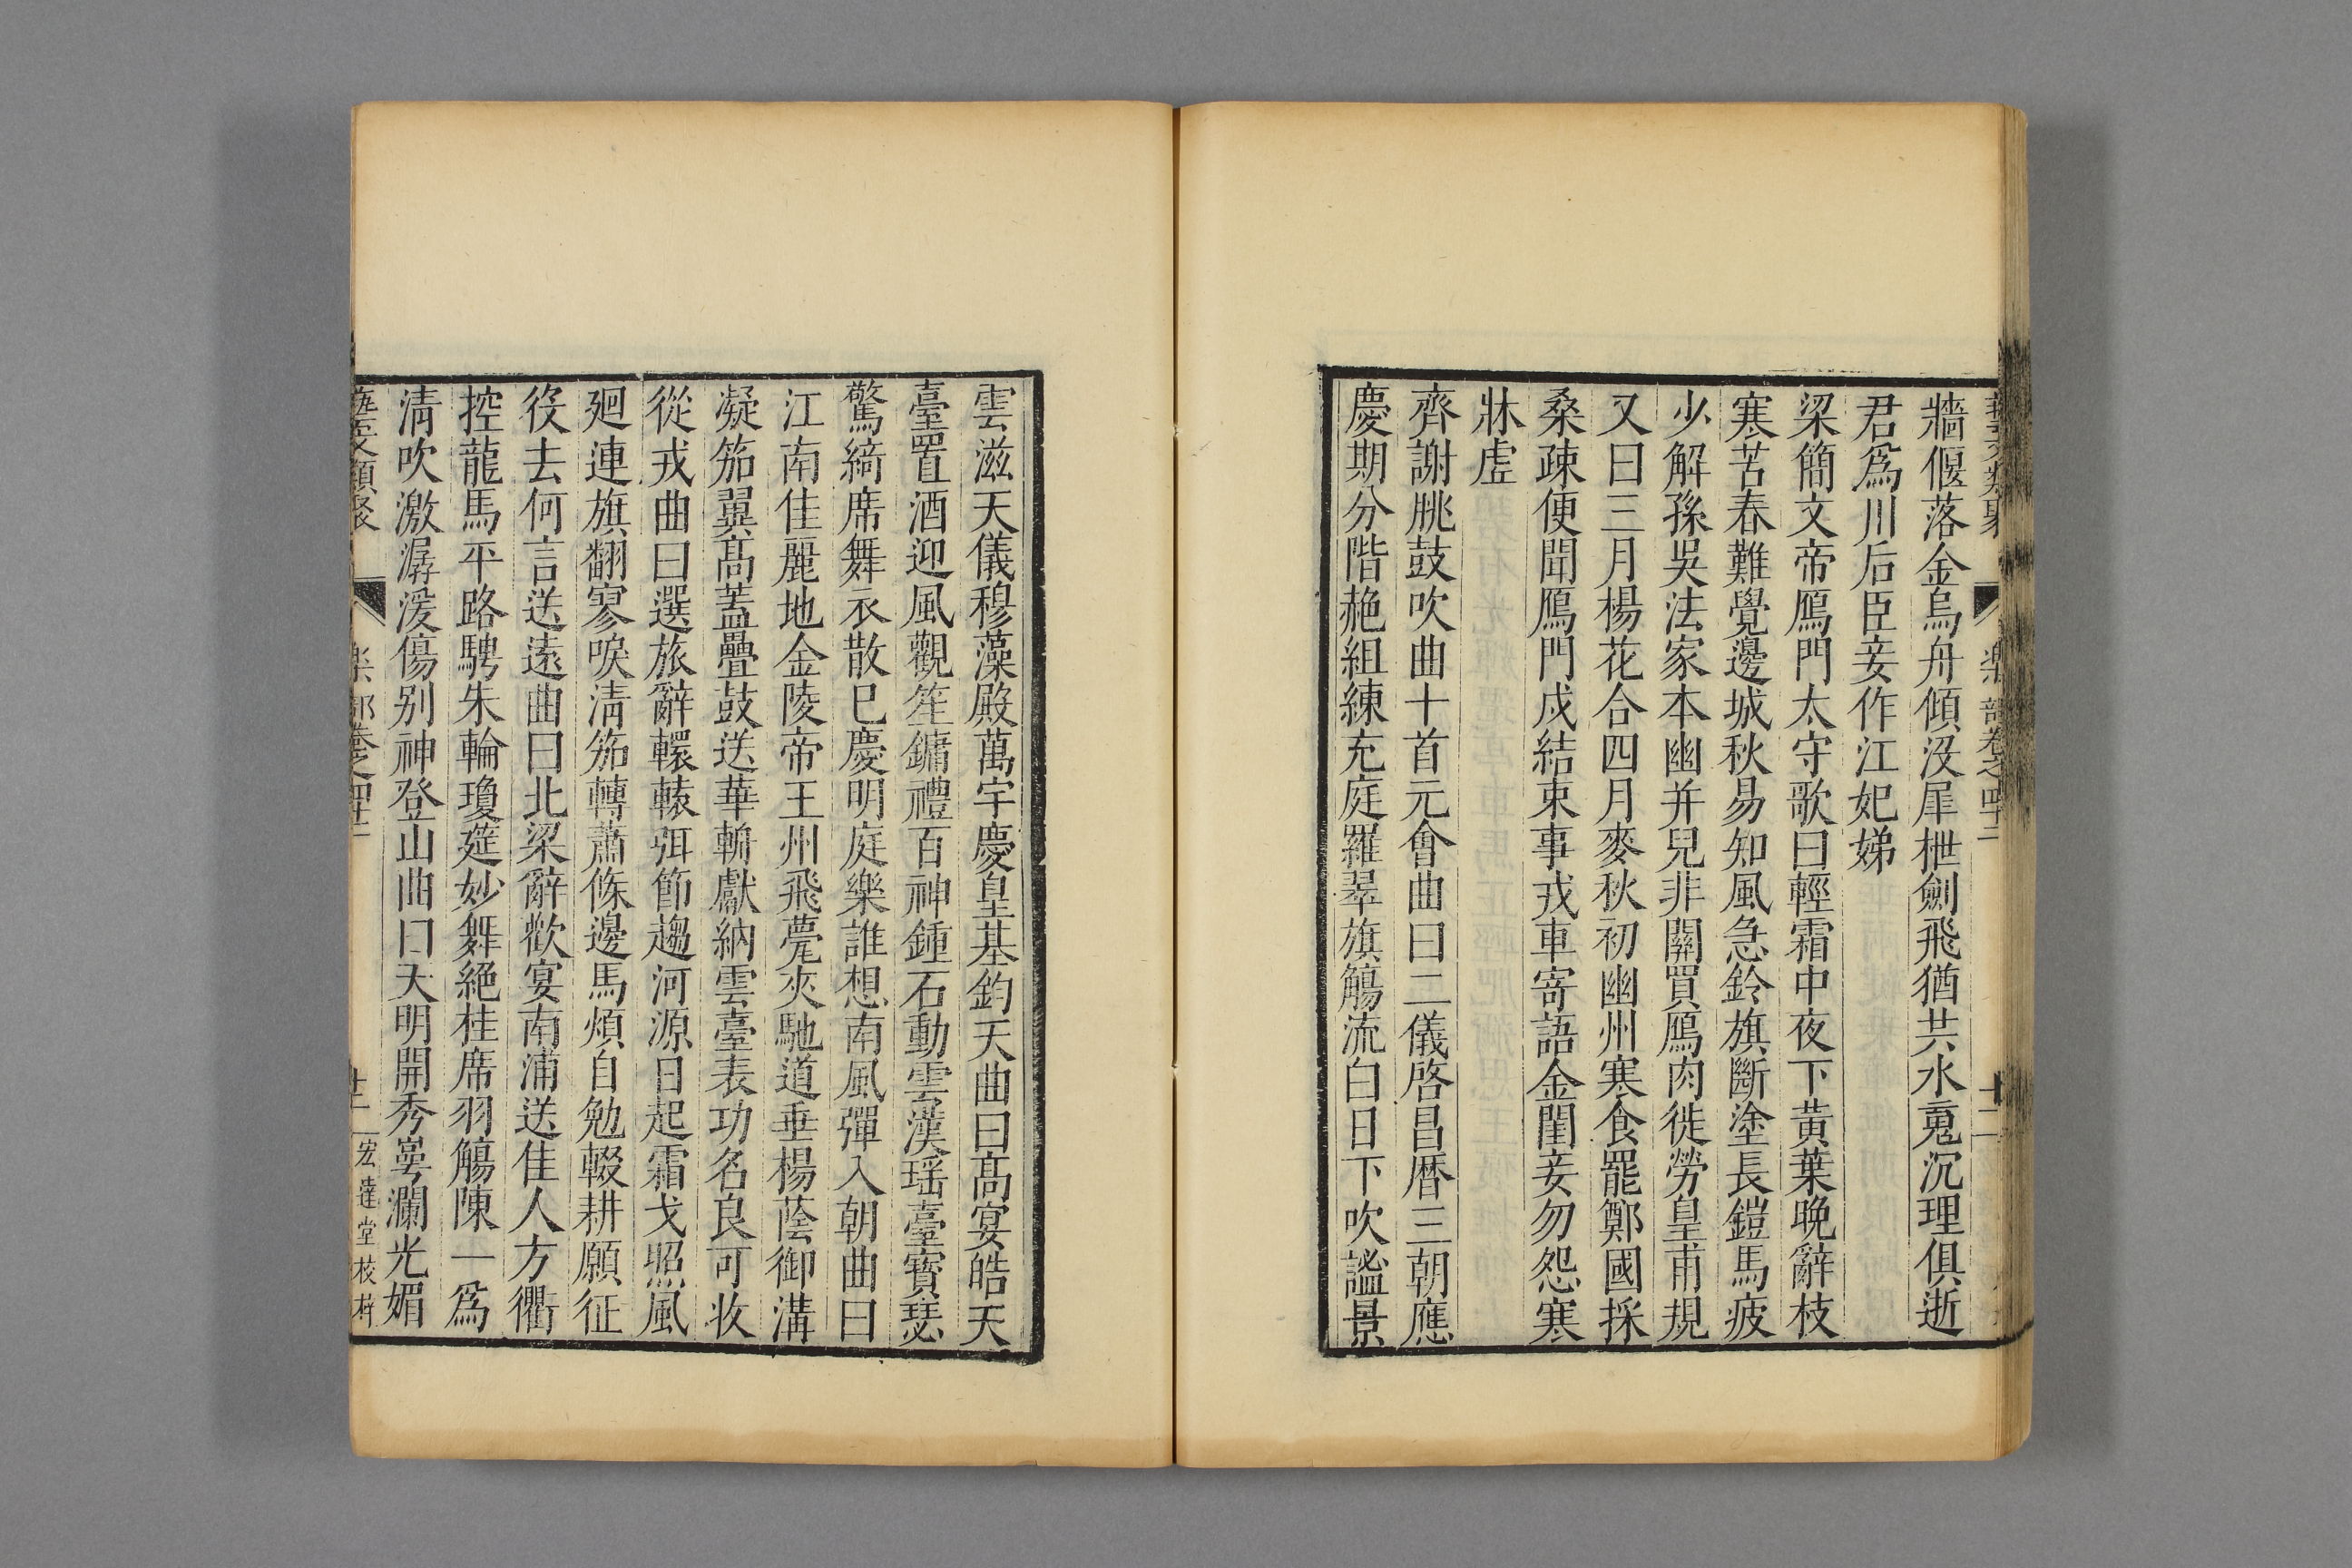 牆偃落金烏舟傾沒犀枻劍飛猶共水䰟沉理俱逝
君爲川后臣妾作江妃娣
梁簡文帝鴈門太守歌曰輕霜中夜下黃葉晚辭枝
寒苦春難覺邊城秋易知風急鈴旗斷塗長鎧馬疲
少解孫吳法家本幽并兒非關買鴈肉徙勞皇甫規
又曰三月楊花合四月麥秋初幽州寒食罷鄭國採
桑疎便聞鴈門戍結束事戎車寄語金閨妾勿怨寒
牀虛
齊謝朓鼓吹曲十首元會曲曰二儀啓昌曆三朝應
慶期分階赩組練充庭羅翠旗觴流白日下吹謐景
雲滋天儀穆藻殿萬宇慶皇基鈞天曲曰高宴皓天
臺置酒迎風觀笙鏞禮百神鍾石動雲漢瑶臺寶瑟
驚綺席舞衣散巳慶明庭樂誰想南風彈入朝曲曰
江南佳麗地金陵帝王州飛甍夾馳道垂楊蔭御溝
凝笳翼高蓋疊鼓送華輈獻納雲臺表功名良可收
從戎曲曰選旅辭轘轅弭節趨河源日起霜戈照風
廻連旗翻寥唳清笳轉蕭條邊馬煩自勉輟耕願征
役去何言送遠曲曰北梁辭歡宴南浦送佳人方衢
控龍馬平路騁朱輪瓊筵妙舞絕桂席羽觴陳一爲
清吹激潺湲傷别神登山曲曰天明開秀崿瀾光媚
藝文類聚 樂部卷之四十二 十二 宏達堂校梓